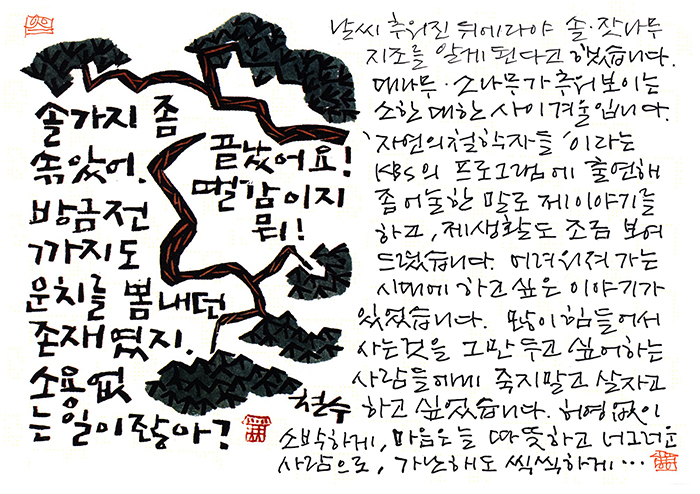 솔가지 좀
솎았어.
방금전
까지도
운치를 뽐내던
존재였지.
소용없
는 일이잖아?
끝났어요!
땔감이지
뭐!
철수
날씨 추워진 뒤에라야 솔·잣나무
지조를 알게 된다고 했습니다.
대나무·소나무가 추워 보이는
소한 대한 사이 겨울입니다.
'자연의 철학자들'이라는
KBS의 프로그램에 출연해
좀 어눌한 말로 제 이야기를
하고, 제 생활도 조금 보여
드렸습니다. 어려워져 가는
시대에 하고 싶은 이야기가
있었습니다. 많이 힘들어서
사는 것을 그만두고 싶어하는
사람들에게 죽지말고 살자고
하고 싶었습니다. 허영없이
소박하게, 마음은 늘 따뜻하고 너그러운
사람으로, 가난해도 씩씩하게…